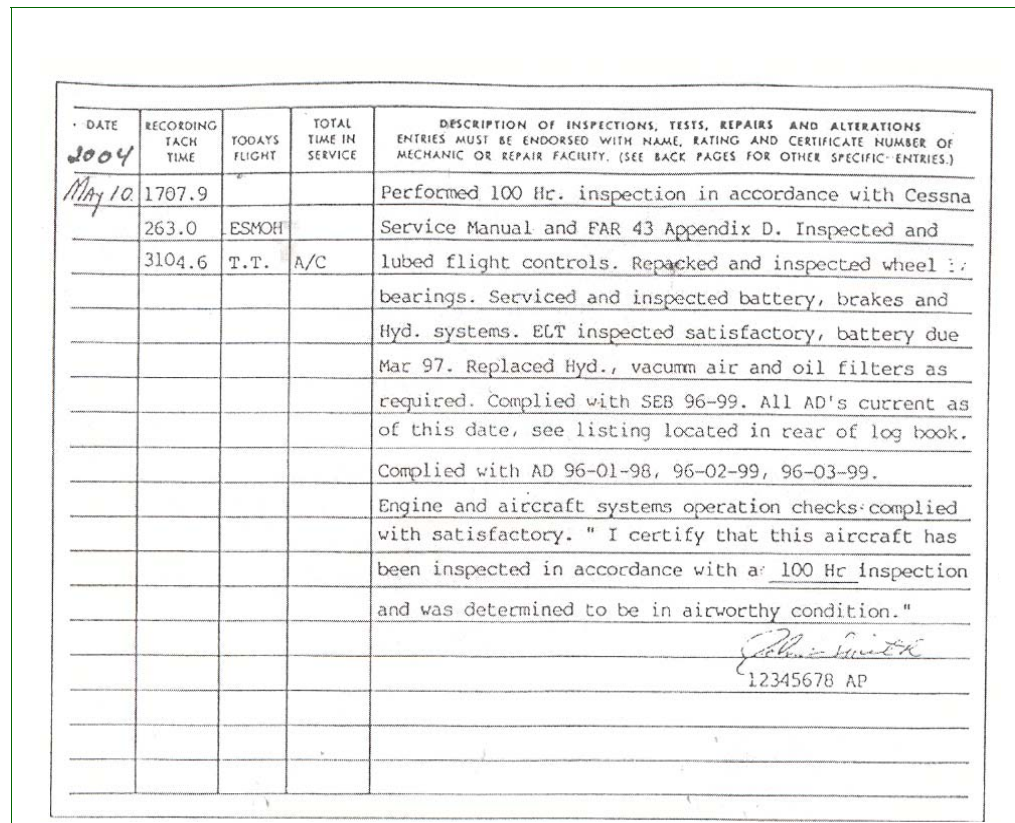 DATE
2004
RECORDING
TACH
TIME
TODAYS
FLIGHT
TOTAL
TIME IN
SERVICE
DESCRIPTION OF INSPECTIONS, TESTS, REPAIRS AND ALTERATIONS
ENTRIES MUST BE ENDORSED WITH NAME, RATING AND CERTIFICATE NUMBER OF
MECHANIC OR REPAIR FACILITY. (SEE BACK PAGES FOR OTHER SPECIFIC ENTRIES.)
May 10. 1707.9 Performed 100 Hr. inspection in accordance with Cessna
263.0 ESMOH Service Manual and FAR 43 Appendix D. Inspected and
3104.6 T.T. A/C lubed flight controls. Repacked and inspected wheel
bearings. Serviced and inspected battery, brakes and
Hyd. systems. ELT inspected satisfactory, battery due
Mar 97. Replaced Hyd., vacumm air and oil filters as
required. Complied with SEB 96-99. All AD's current as
of this date, see listing located in rear of log book.
Complied with AD 96-01-98, 96-02-99, 96-03-99.
Engine and aircraft systems operation checks complied
with satisfactory. " I certify that this aircraft has
been inspected in accordance with a 100 Hr inspection
and was determined to be in airworthy condition."
John Smith
12345678 AP